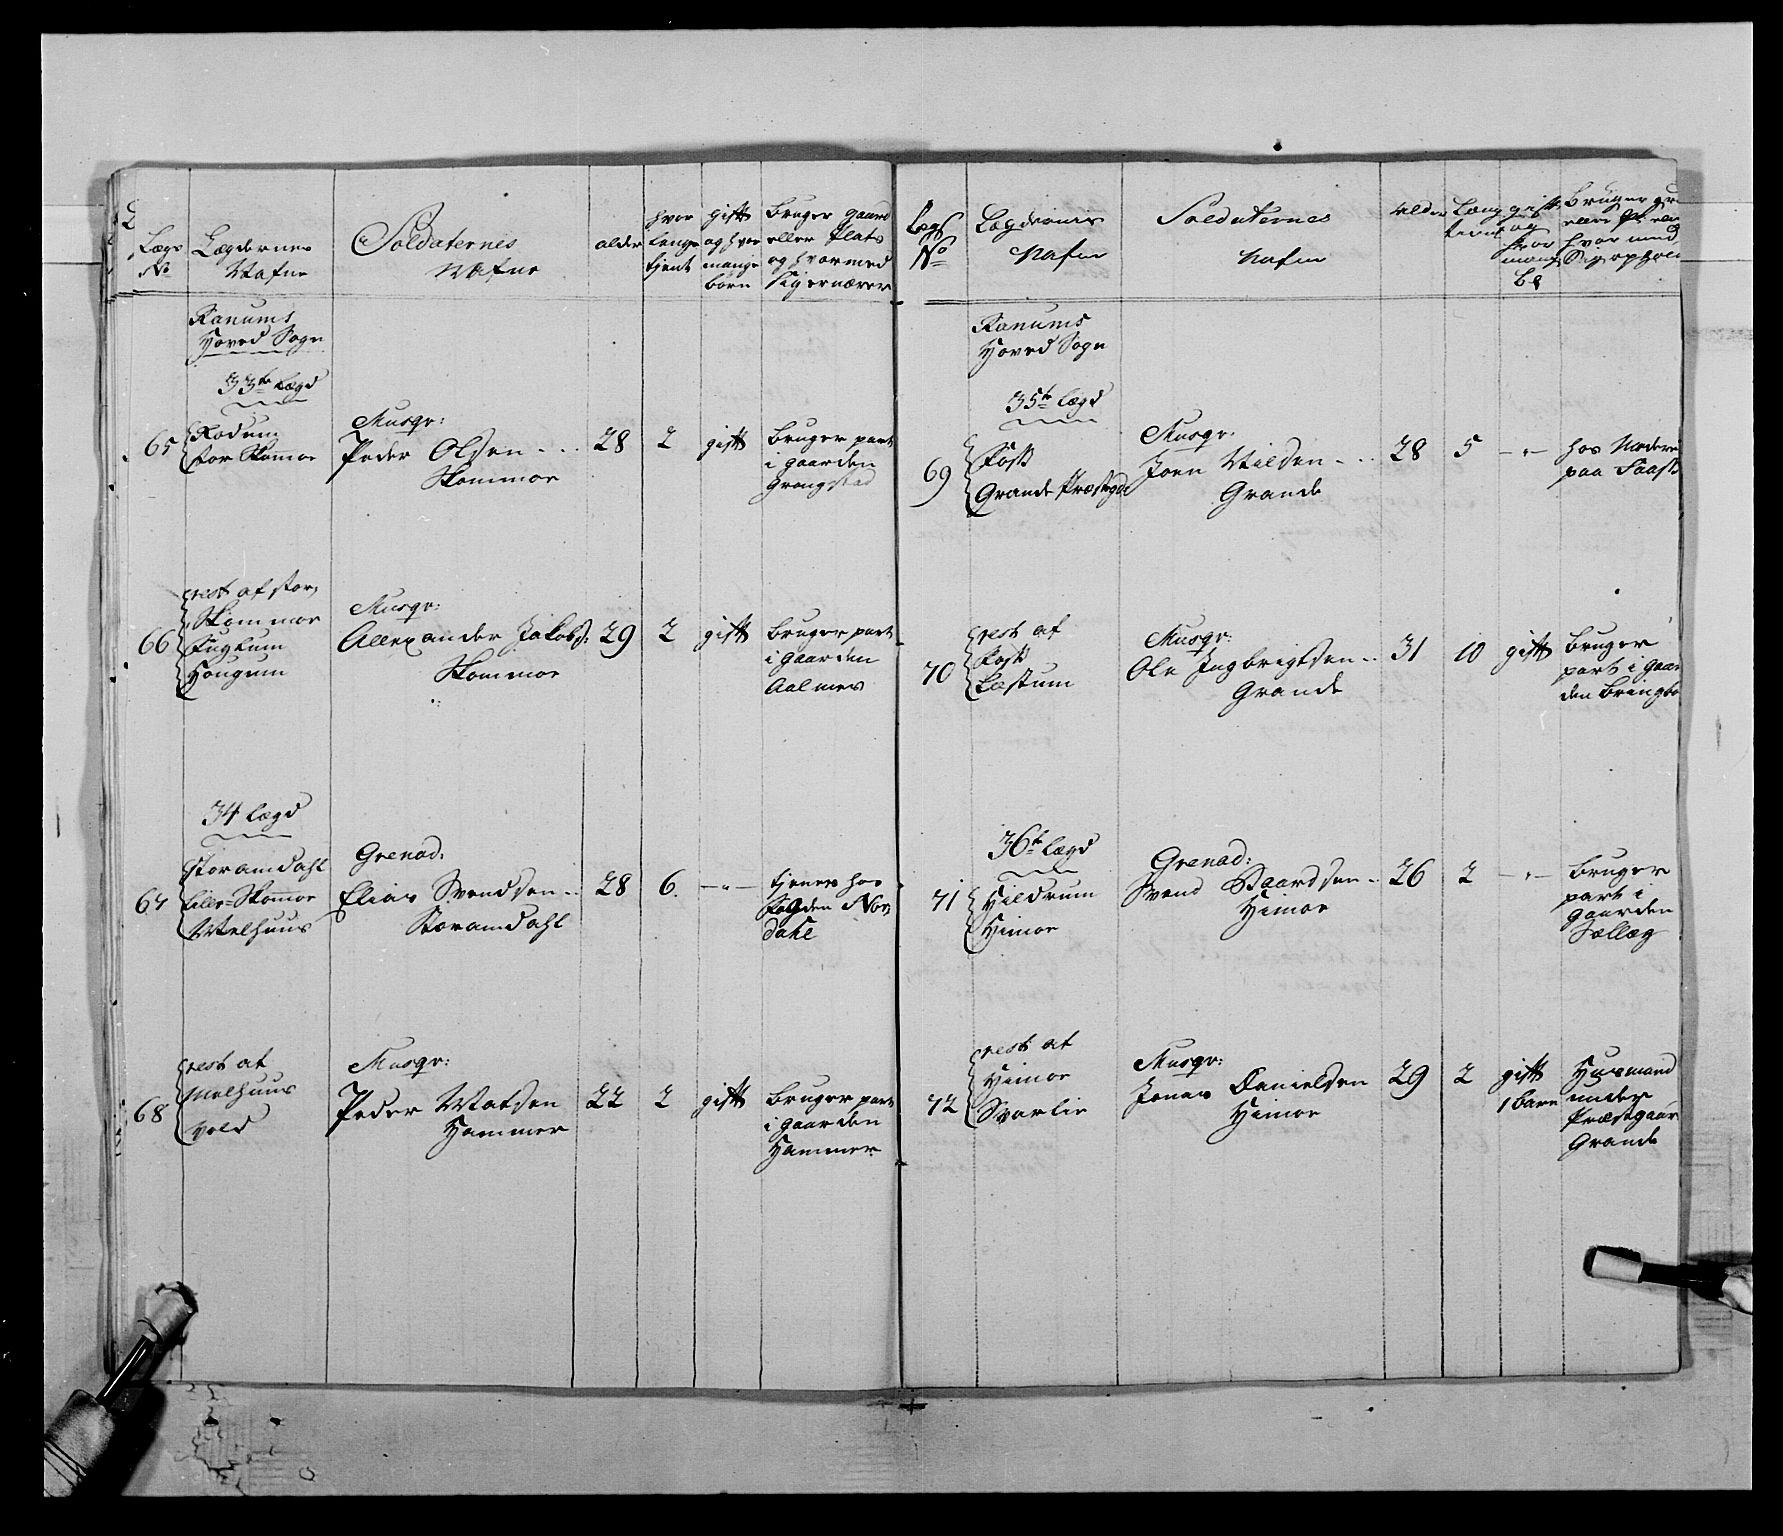 Lægs No
Lægdernes Nafne
Soldaternes Nafne
alder
hvor lenge tjent
gift og hvor mange børn
bruger gaard eller Plads og hvormed sig ernærer
Ranums
Hoved Sogn
33te Lægd
65
Rodum
stor Skommoe
Musqr:
Peder Olsen
Skommoe
28
2
gift
bruger part
i gaarden
Grongstad
66
rest af stor
Skommoe
Fuglum
Hougum
Musqr:
Allexander Jakobs:
Skommoe
29
2
gift
bruger part
i gaarden
Aalmes
34 Lægd
67
Storamdahl
Lille-Skommoe
Melhuus
Grenad:
Elias Svendsen
Storamdahl
28
6
-"-
tjener hos
Fogden Nor
dahl
68
rest af
Melhuus
Vold
Musqr:
Peder Matsen
Hammer
22
2
gift
bruger part
i gaarden
Hammer
Lægs No
Lægdernes Nafne
Soldaternes Nafne
Alder
Læng tient
gift og hvor mang B
Ranums
Hoved Sogn
35te Lægd
69
Fosk
Grande Præstegd
Musqr:
Joen Nilsen
Grande
28
5
-"-
hos Moderen
paa
70
rest af
Fosk
Læstum
Musqr:
Ole Ingbrigtsen
Grande
31
10
gift
bruger
part i gaar
den
36te Lægd
71
Hildrum
Himoe
Grenad:
Svend Baardsen
Himoe
26
2
-"-
bruger
part i
gaarden
Sællæg
72
rest af
Himoe
Svarlie
Musqr:
Jonas Danielsen
Himoe
29
2
gift
1 barn
Husmand
under
Præstgaar
Grande